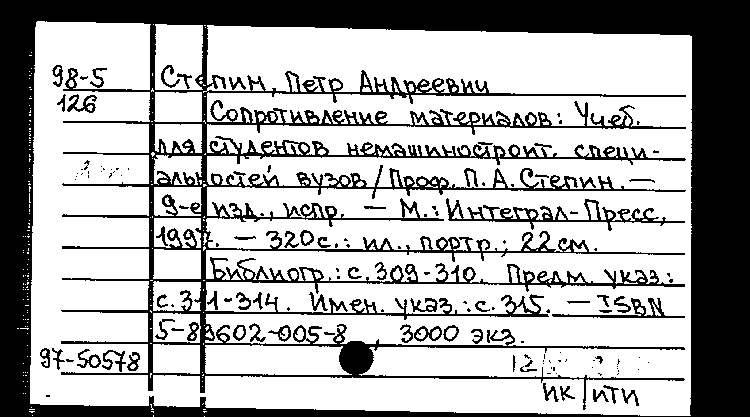 98-5 Степин, Петр Андреевич
126 Сопротивление материалов: Учеб.
для студентов немашиностроит. специ-
альностей вузов / Проф. П. А. Степин. —
9-е изд., испр. — М.: Интеграл-Пресс,
1997. — 320 с.: ил., портр.; 22 см.
Библиогр.: с. 309-310. Предм. указ.:
с. 311-314. Имен. указ.: с. 315. — ISBN
5-89602-005-8, 3000 экз.
97-50578 12
ИК / ИТИ